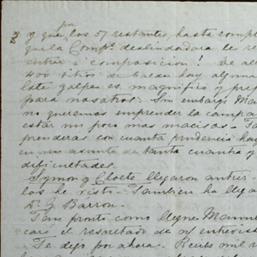 2 y que, los 07 restantes, hasta comp
que la Compª deslindadora le re
entre á composicion! De al
400 sitios se hacen hay alguno
Este golpe es magnifico y pre
para nosotros. Sin embargo Ma
no queremos emprender la campa
estar un poco mas macisos.
prenderás con cuanta prudencia hay
en un asunto de tanta cuantia y
dificultades.
Symon y Cloete llegaron antier.
los he visto. Tambien ha llega
D. J. Barron.
Tan pronto como llegue Manuel
caré el resultado de
Te dejo por ahora. Recibe mil